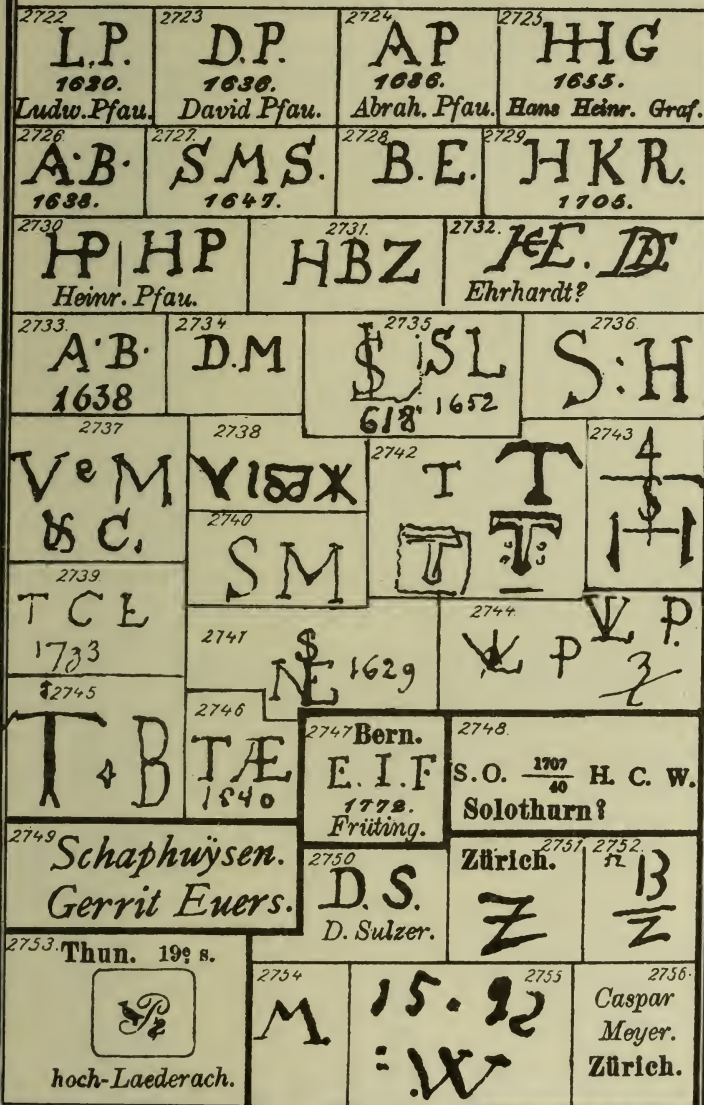 2722
L.P.
1620.
Ludw. Pfau.
2723
D.P.
1636.
David Pfau.
2724
AP
1686.
Abrah. Pfau.
2725
HHG
1655.
Hans Heinr. Graf.
2726
A·B·
1638.
2727
SMS.
1647.
2728
B.E.
2729
HKR.
1705.
2730
HP | HP
Heinr. Pfau.
2731.
HBZ
2732.
Ehrhardt?
2733.
A·B·
1638
2734
D.M
2735
SL
618 1652
2736.
S:H
2737
V e M
& C.
2738
2739.
T C E
1733
2740
SM
2741
1629
2742
T T
T T
2743
4
H
2744.
P P.
2745
T B
2746
TÆ
1540
2747 Bern.
E. I. F
1772.
Früting.
2748.
S.O. 1707/40 H. C. W.
Solothurn?
2749
Schaphuÿsen.
Gerrit Euers.
2750
D. S.
D. Sulzer.
2751
Zürich.
Z
2752.
B
Z
2753.
Thun. 19e s.
hoch-Laederach.
2754
M.
2755
15·92
:W
2756.
Caspar
Meyer.
Zürich.